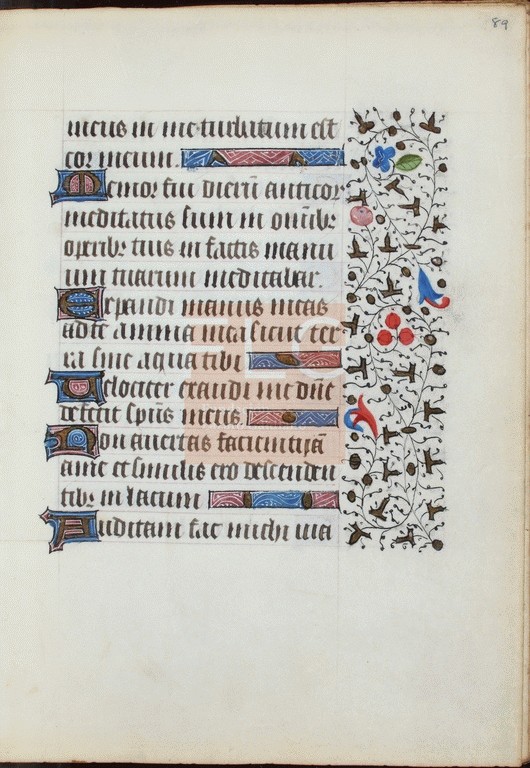 89
meus in me turbatum est
cor meum.
Memor fui dierū antiquor
meditatus sum in omībꝫ
operibꝫ tuis in factis manu
um tuarum meditabar.
Expandi manus meas
ad te anima mea sicut ter
ra sine aqua tibi
Velociter exaudi me dn̄e
defecit sp̄us meus.
Non auertas faciem tuā
a me et similis ero descenden
tibꝫ in lacum
Auditam fac michi ma